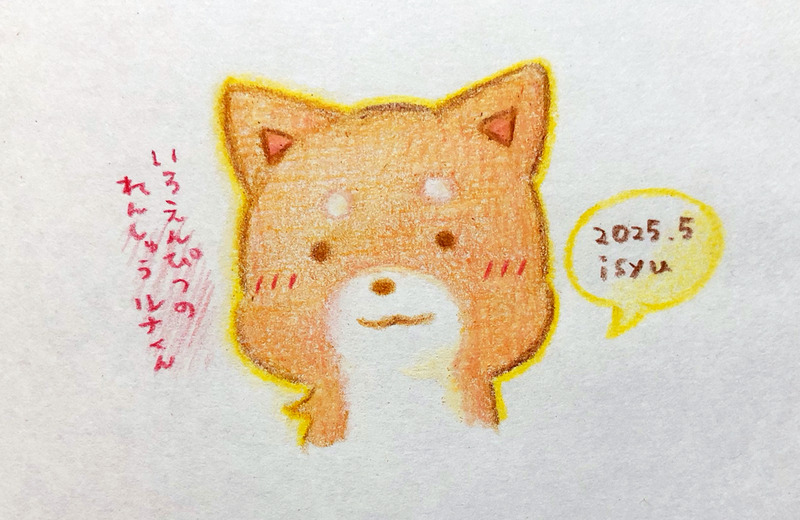 いろえんぴつの
れんしゅう ルナくん
2025.5
isyu